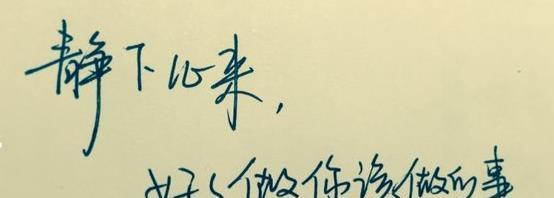 静下心来，
好好做你该做的事